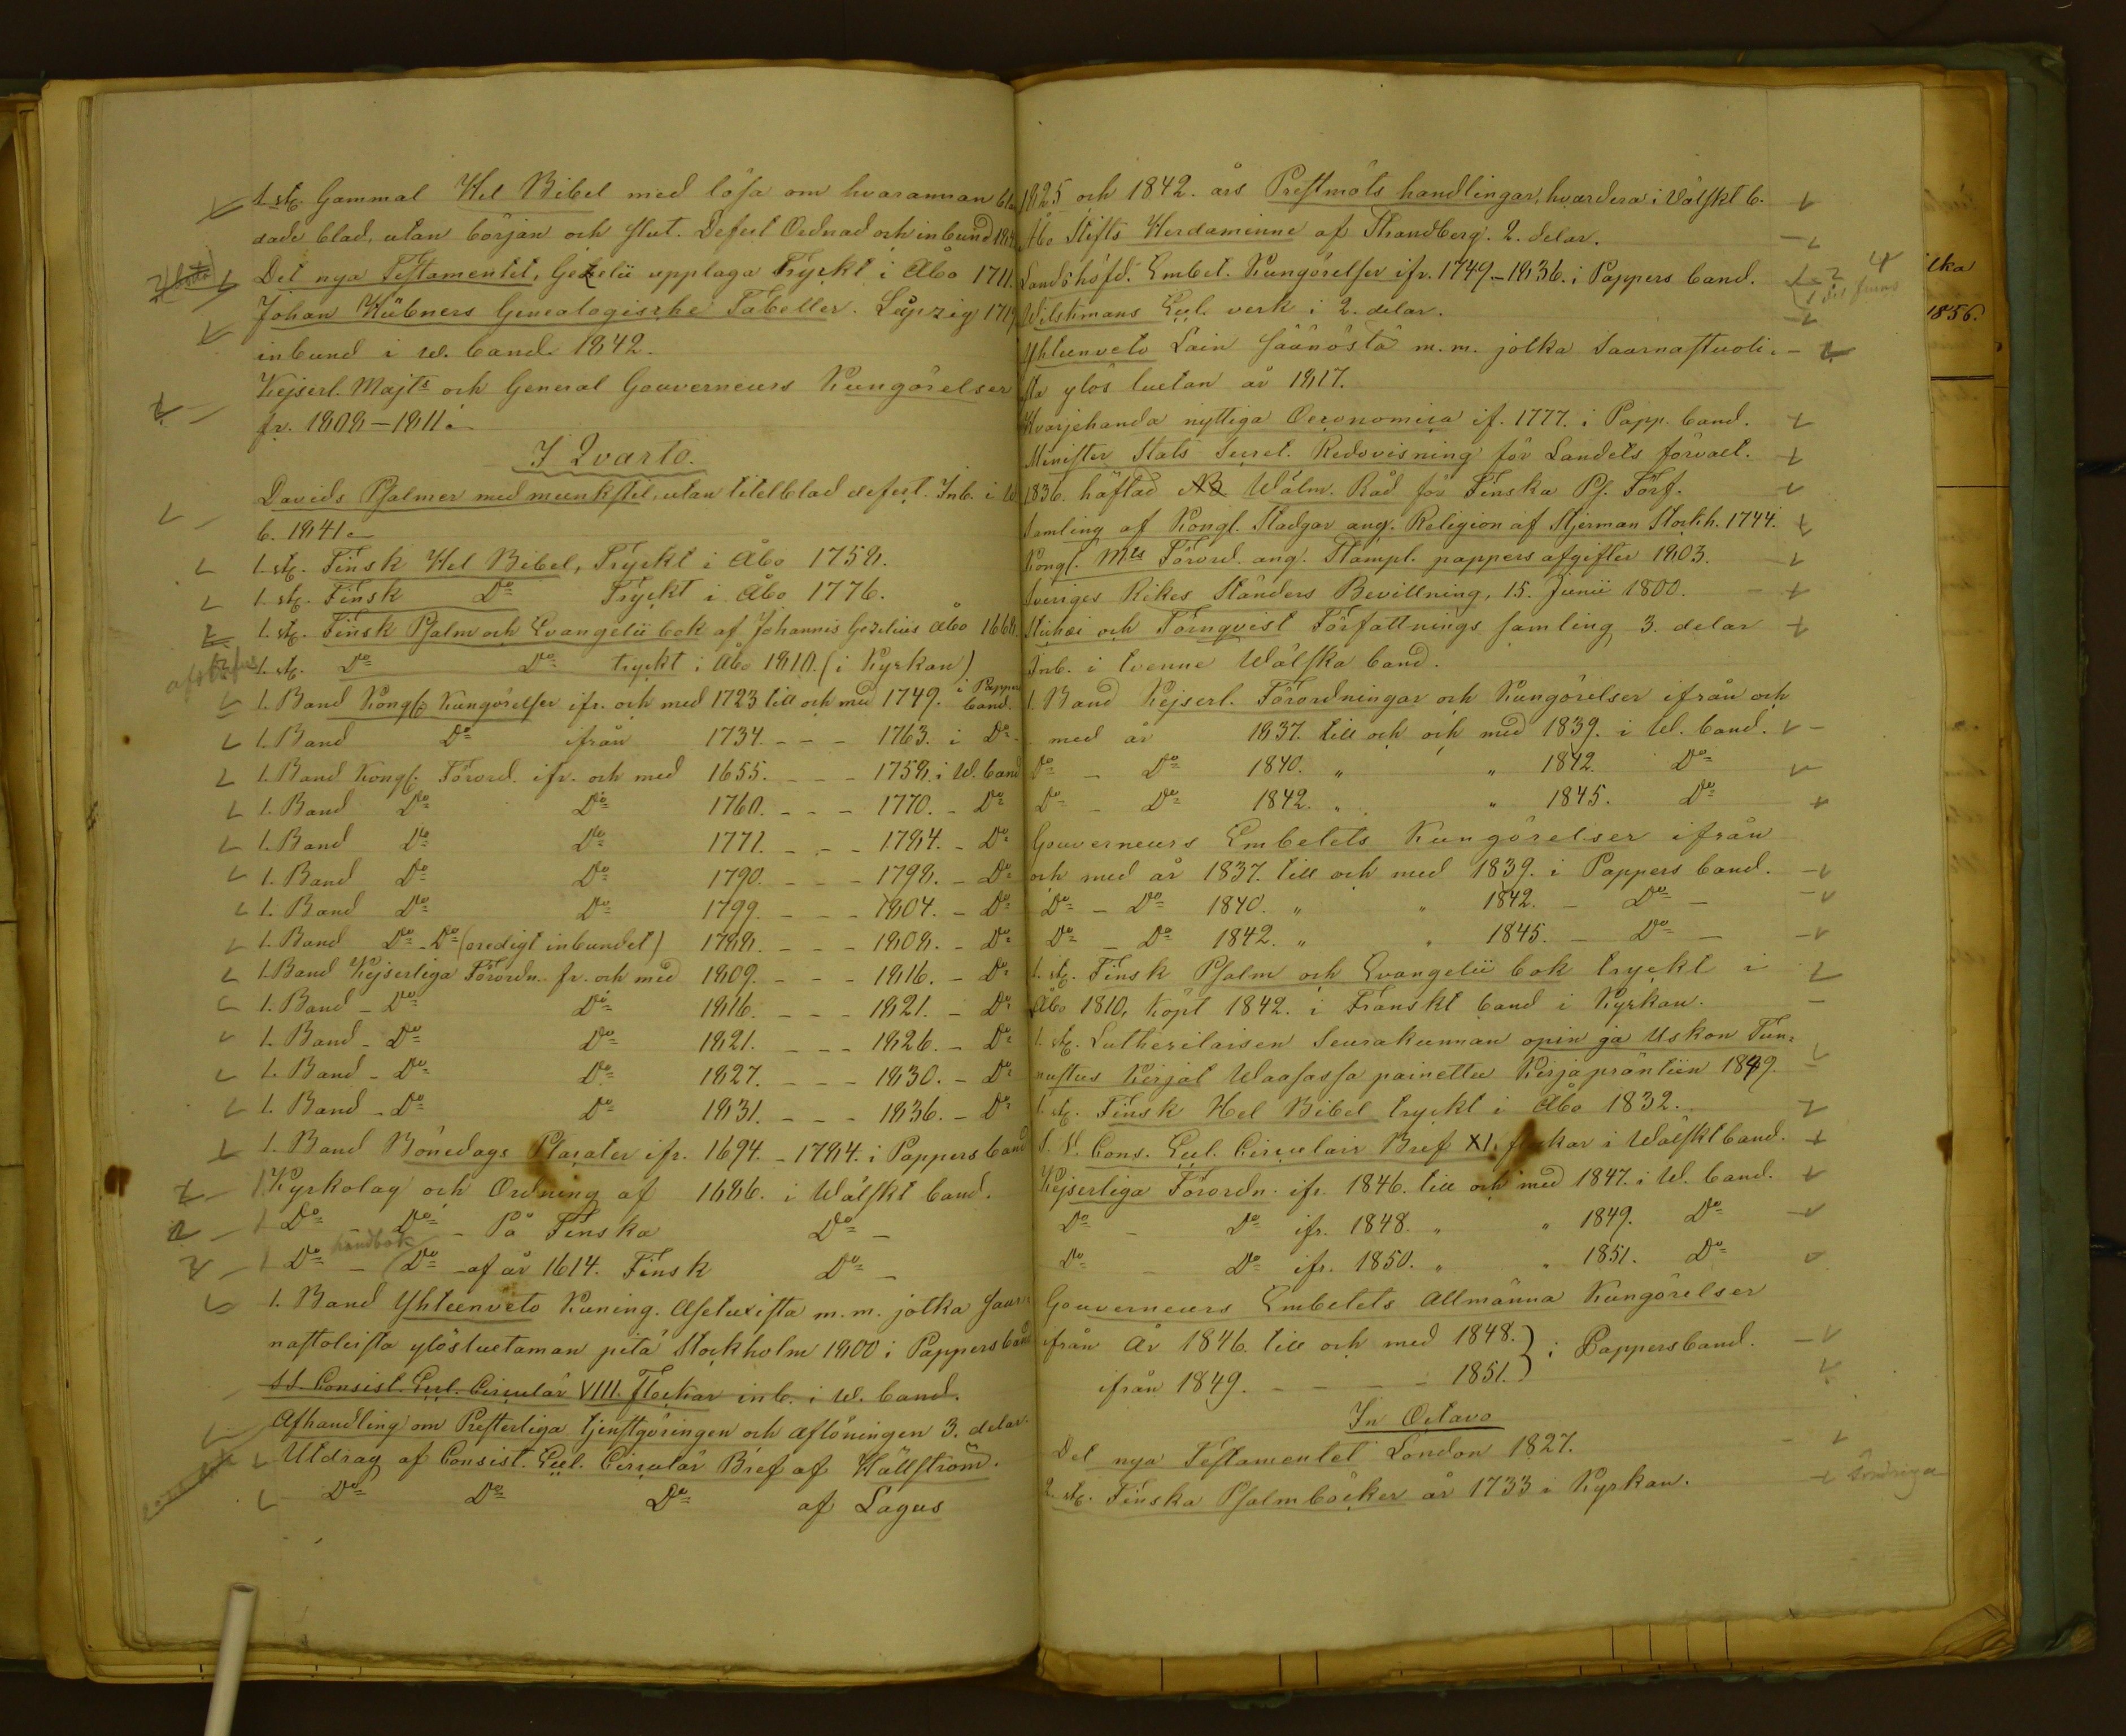 1. st. Gammal Hel Bibel med lösa om hvarannan bla
dade blad, utan början och slut. Defect Ordnad och inbund 184
Det nya Testamentet, Gezelii upplaga Tryckt i Åbo 1711.
Johan Hübners Genealogische Tabeller. Leipzig 1719
inbund i W. band 1842.
Kejserl. Majts och General Gouverneurs Kungörelser
fr. 1808–1811.
I Qvarto.
Davids Psalmer med munkstil, utan titelblad defect. Inb. i W
b. 1841.
1. st. Finsk Hel Bibel, Tryckt i Åbo 1758.
1. st. Finsk Do Tryckt i Åbo 1776.
1. st. Finsk Psalm och Evangelii bok af Johannis Gezelius Åbo 1668.
1. st. Do Do tryckt i Åbo 1810. (i Kyrkan)
1. Band Kongl. Kungörelser ifr. och med 1723 till och med 1749. i Pappers band.
1. Band Do ifrån 1734. - - - 1763. i Do
1. Band Kongl. Förord. ifr. och med 1655. - - - 1758. i W. band
1. Band Do Do 1760. - - - 1770. - Do
1. Band Do Do 1771. - - - 1784. - Do
1. Band Do Do 1790. - - - 1798. - Do
1. Band Do Do 1799. - - - 1804. - Do
1. Band Do - Do (oredigt inbundet) 1788. - - - 1808. - Do
1. Band Kejserliga Förordn. fr. och med 1809. - - - 1816. - Do
1. Band - Do Do 1816. - - - 1821. - Do
1. Band - Do Do 1821. - - - 1826. - Do
1. Band - Do Do 1827. - - - 1830. - Do
1. Band - Do Do 1831. - - - 1836. - Do
1. Band Bönedags Placater ifr. 1694. - 1784. i Pappers band
1. Kyrkolag och Ordning af 1686. i Wälskt band.
1 Do - Do - På Finska Do -
handbok
1 Do - Do - af år 1614. Finsk Do -
1. Band Yhteenveto Kuning. Asetuxista m.m. jotka saar-
nastoleista ylösluetaman pitä Stockholm 1800 i Pappers band
S S. Consist. Eccl. Circulär VIII. Flockar inb. i W. band.
Afhandling om Presterliga tjenstgöringen och aflöningen 3. delar.
Utdrag af Consist. Eccl. Circulär Bref af Hällström.
Do Do Do af Lagus
1825 och 1842. års Prestmöts handlingar, hvardera i Välskt b.
Åbo Stifts Herdaminne af Strandberg. 2. delar.
Landshöfd. Embet. Kungörelser ifr. 1749–1836. i Pappers band.
Wilskmans Eccl. verk i 2. delar.
Yhteenveto Lain säänöstä m.m. jotka Saarnastuoli-
sta ylös luetan år 1817.
Hvarjehanda nyttiga Oeconomica if. 1777. i Papp. band.
Minister Stats Secret. Redovisning för Landets förvalt.
1836. häftad NB Wälm. Råd för Finska Ps. Förf.
Samling af Kongl. Stadgar ang. Religion af Stjerman Stockh. 1744.
Kongl. Mts Förord. ang. Stampl. pappers afgifter 1803.
Sveriges Rikes Ständers Bevillning, 15. Junii 1800.
Stichæi och Törnqvist Författnings samling 3. delar
Inb. i tvenne Wälska band.
1. Band Kejserl. Förordningar och Kungörelser ifrån och
med år 1837. till och och med 1839. i W. band.
Do - Do 1840. " " 1842. Do
Do - Do 1842. " " 1845. Do
Gouverneurs Embetets Kungörelser ifrån
och med år 1837. till och med 1839. i Pappers band.
Do - Do 1840. " " 1842. - Do -
Do - Do 1842. " " 1845. - Do -
1. st. Finsk Psalm och Evangelii bok tryckt i
Åbo 1810, köpt 1842. i Franskt band i Kyrkan.
1. st. Lutherilaisen Seurakunnan opin ja Uskon Tun-
nustus Kirjat Waasassa painettu Kirjapräntiin 1849
1. st. Finsk Hel Bibel tryckt i Åbo 1832.
S. S. Cons. Eccl. Circulair Bref XI. flockar i Wälskt band.
Kejserliga Förordn. ifr. 1846. till och med 1847. i W. band.
Do - Do ifr. 1848. " " 1849. Do
Do - Do ifr. 1850. " " 1851. Do
Gouverneurs Embetets Allmänna Kungörelser
ifrån År 1846. till och med 1848. } i Pappersband.
ifrån 1849. - - - - 1851.
In Octavo
Det nya Testamentet London 1827.
2. st. Finska Psalmböcker år 1733 i Kyrkan. Söndriga
lka
1856.